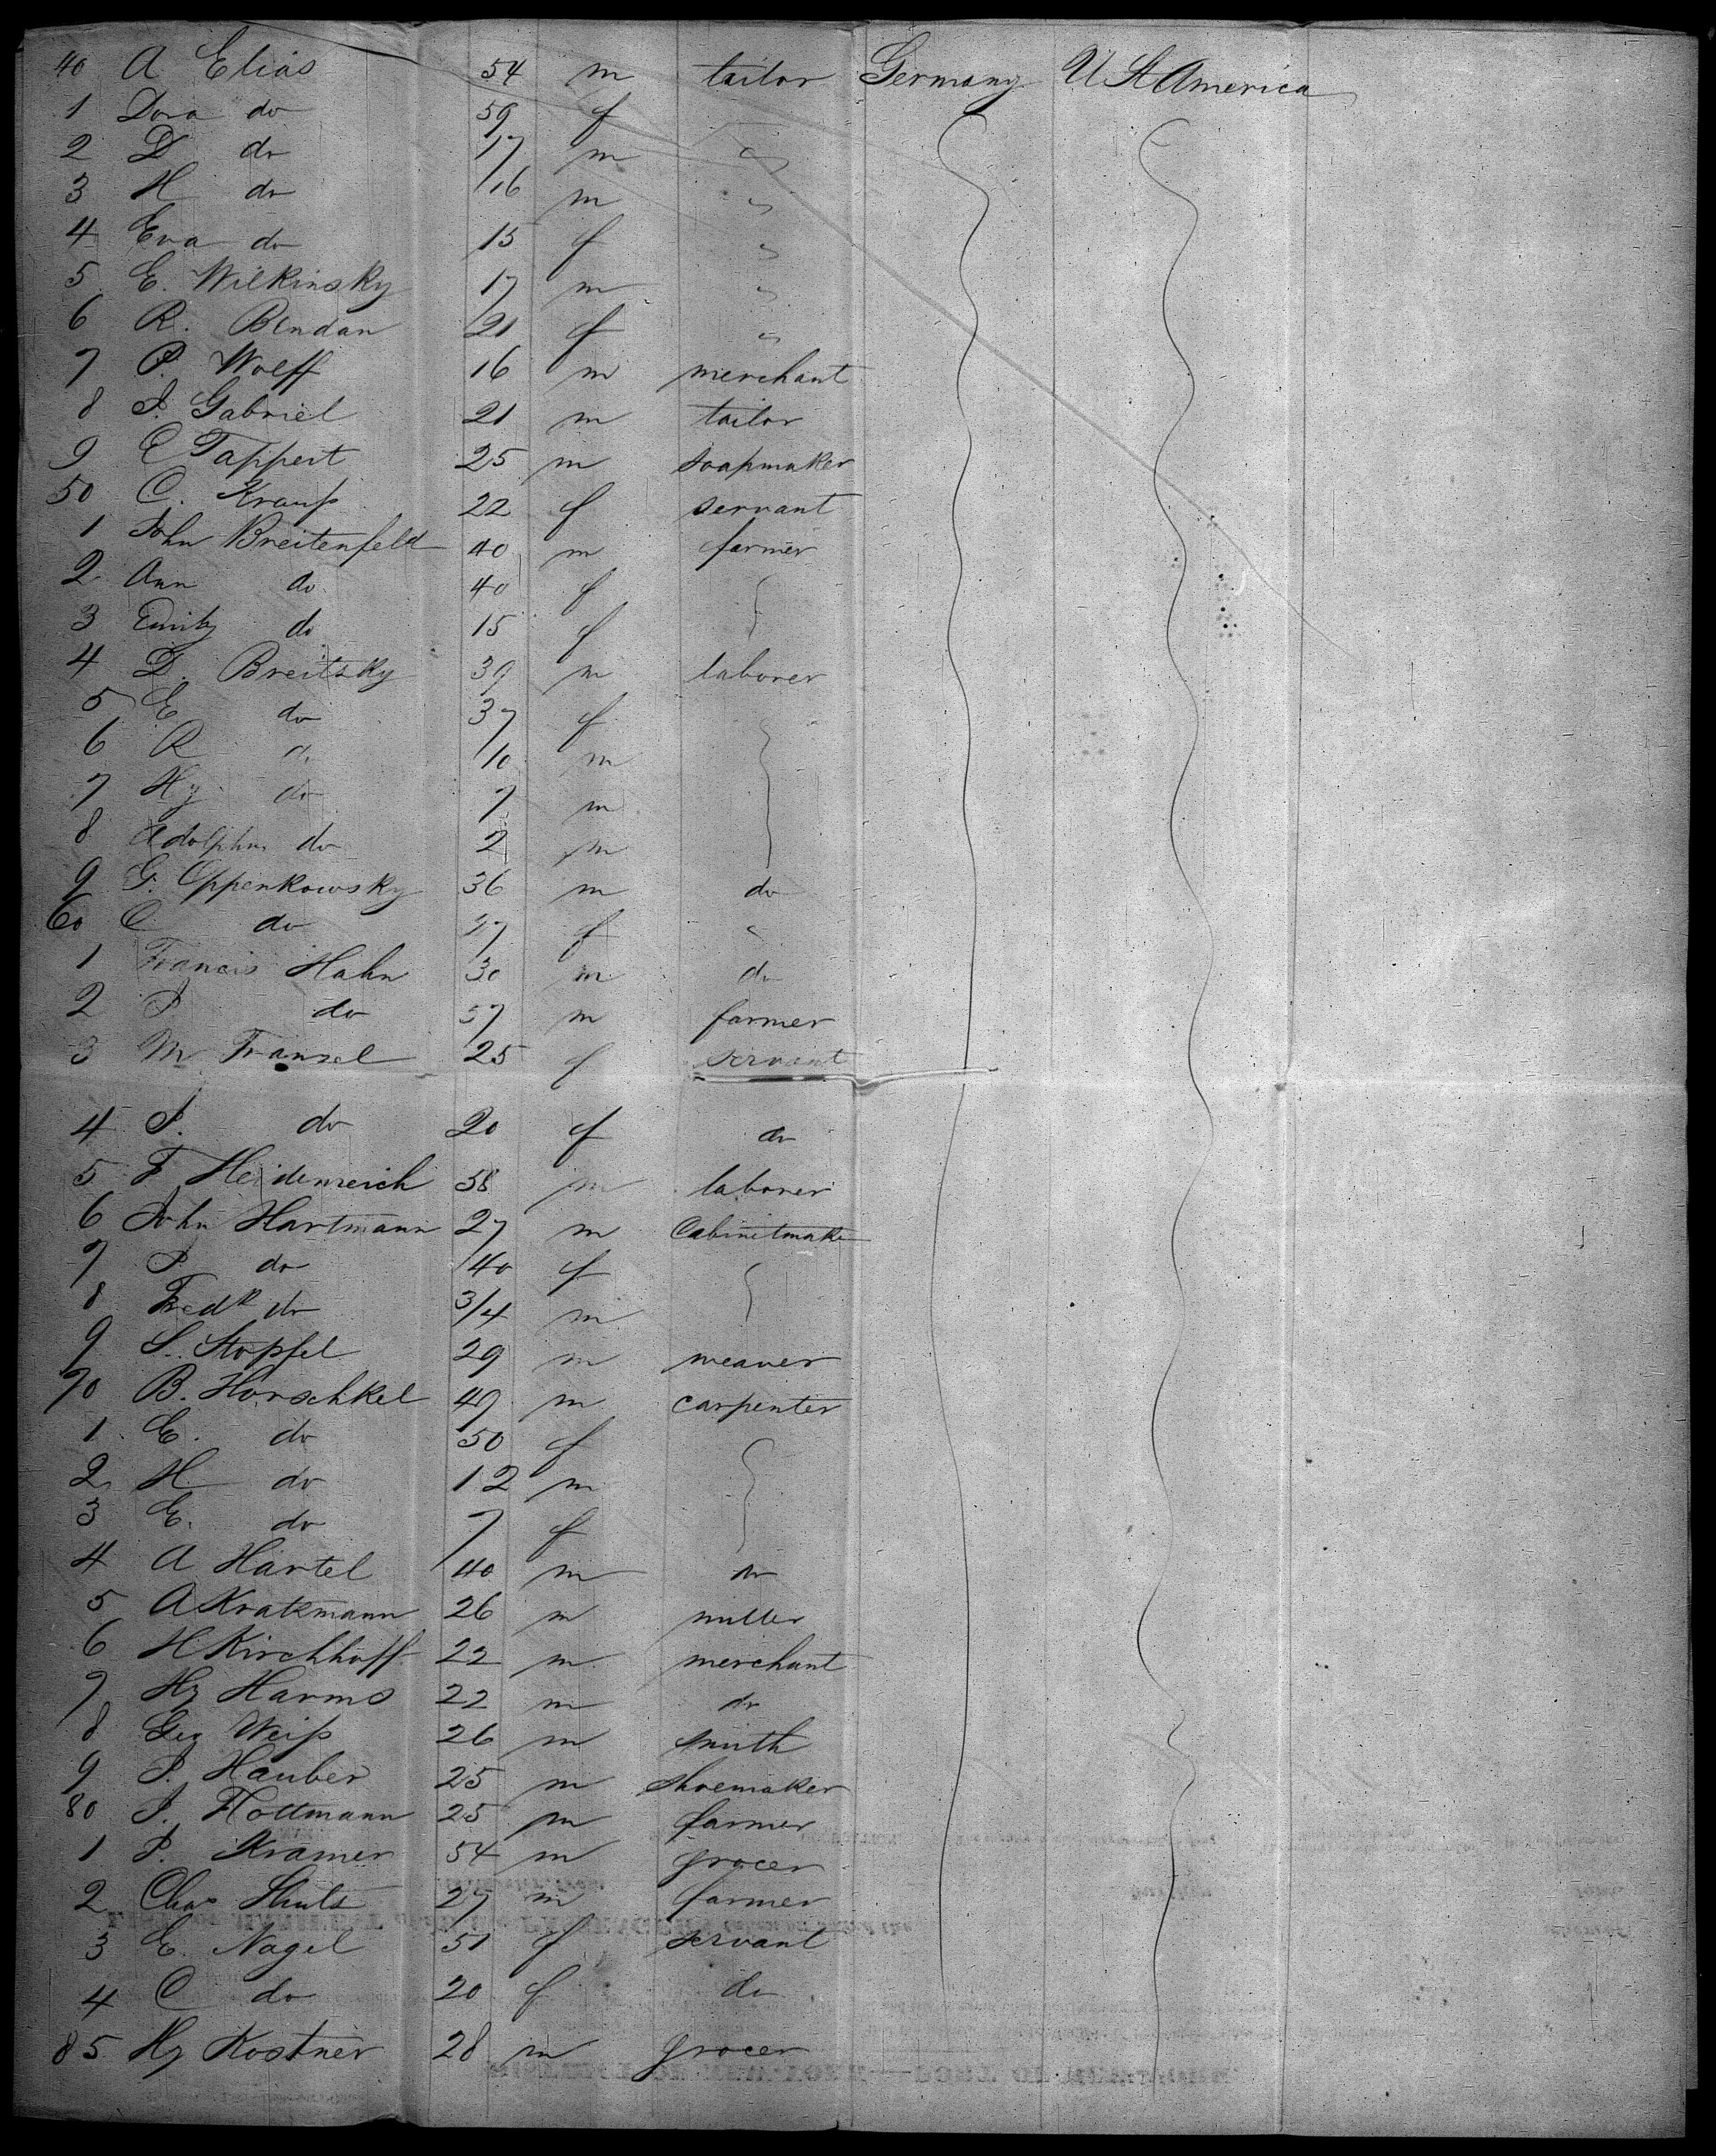 40 A Elias 54 m tailor Germany U St America
1 Dora do 59 f
2 D do 17 m "
3 H do 16 m "
4 Eva do 15 f "
5 E. Wilkinsky 17 m "
6 R. Bendan 21 f "
7 P. Wolff 16 m merchant
8 I. Gabriel 21 m tailor
9 C Tappert 25 m soapmaker
50 C. Krauß 22 f servant
1 John Breitenfeld 40 m farmer
2 Ann do 40 f
3 Emily do 15 f
4 D. Breitsky 39 m laborer
5 E do 37 f
6 R 10 m
7 Hy do 7 m
8 Adolphus do 2 m
9 G. Oppenkowsky 36 m do
60 C do 27 f "
1 Francis Hahn 30 m do
2 P do 57 m farmer
3 M Fransel 25 f servant
4 P. do 20 f do
5 F Heidenreich 58 m laborer
6 John Hartmann 27 m Cabinetmaker
7 P do 40 f
8 Fredk do 3/4 m
9 S. Stopfel 29 m weaver
70 B. Horschkel 49 m carpenter
1 E. do 50 f
2 H do 12 m
3 E. do 7 f
4 A Härtel 40 m do
5 A Kratzmann 26 m miller
6 H Kirchhoff 22 m merchant
7 Hy Harms 22 m do
8 Geo Weiß 26 m smith
9 P. Hauber 25 m shoemaker
80 J. Hottmann 25 m farmer
1 P. Kramer 54 m grocer
2 Chas Shults 27 m farmer
3 E. Nagel 51 f servant
4 C do 20 f do
85 Hy Kostner 28 m grocer